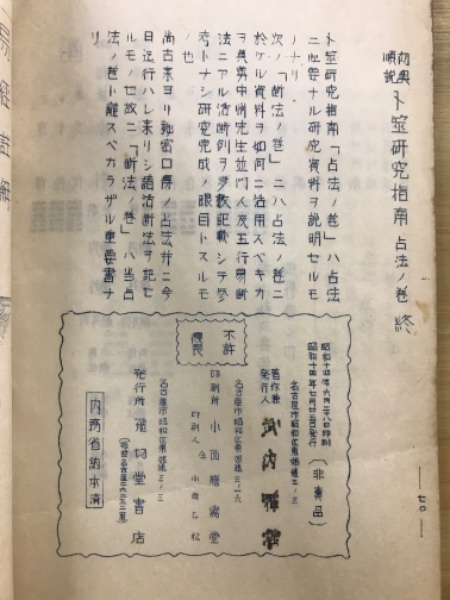 初奥順説 卜筮研究指南 占法ノ巻 終
卜筮研究指南「占法ノ巻」ハ占法
ニ必要ナル研究資料ヲ説明セルモ
ノナリ
次ノ「断法ノ巻」ニハ占法ノ巻ニ
於ケル資料ヲ如何ニ活用スベキカ
ヲ真勢中州先生並門人及五行易断
法ニアル活断例ヲ多数記載シテ参
考トナシ研究完成ノ眼目トスルモ
ノ也
尚古来ヨリ秘密口傳ノ占法并ニ今
日迄行ハレ来リシ諸活断法ヲ記セ
ルモノ也故ニ「断法ノ巻」ハ当占
法ノ巻ト離スベカラザル重要書ナ
リ
七〇
昭和十四年六月二十八日印刷
昭和十四年七月廿五日発行
(非賣品)
名古屋市昭和区東郊通三ノ三
著作兼発行人
不許複製
名古屋市昭和区東郊通三ノ一六
印刷所 小酒膳寫堂
印刷人 仝 小酒乙松
名古屋市昭和区東郊通三ノ三
発行所 書店
内務省納本済
易経註解